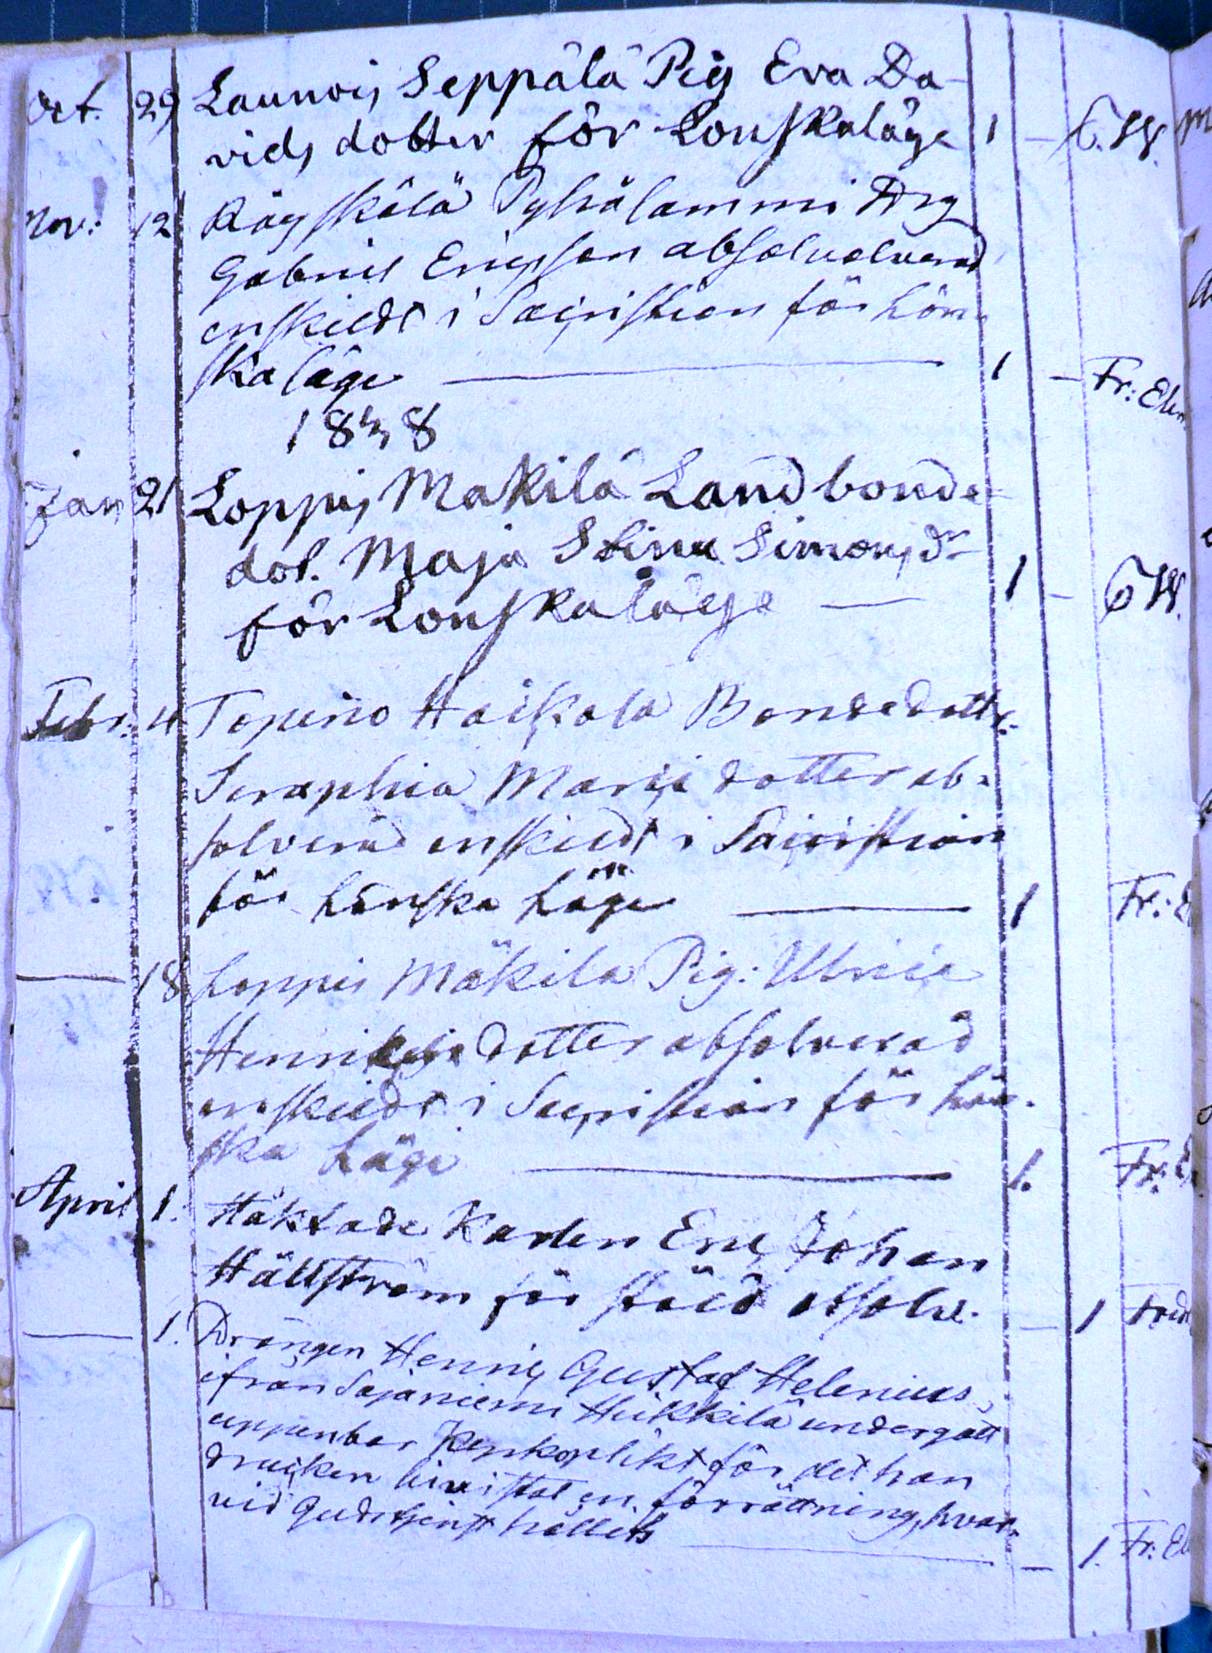 Oct. 29 Launois Seppälä Pig Eva Da-
vids dotter för Lönskaläge 1 – C.W.
Nov: 12 Räyskälä Pyhälammi Drg
Gabriel Ericsson absolulverad
enskildt i Sacristian för löns
ka läge 1 – Fr: Ehr
1838
Jan 21 Loppis Makilä Landbonde
dot. Maja Stina Simons dr
för Lonskaläge 1 – CW.
Febr: 4 Topeno Haikala Bondedottr.
Seraphia Maria dotter ab-
solverad enskildt i Sacristian
för lönska läge 1 Fr:
18 Loppis Mäkilä Pig: Ulrica
Henriksdotter absolverad
enskildt i Sacristian för lön-
ska läge 1. Fr: E
April 1. Häktade Karlen Eric Johan
Hällström för stöld absolv. – 1
1. Drängen Henric Gustaf Helenius
ifrån Sajaniemi Heikkilä undergått
uppenbar Kyrkoplikt för det han
drucken bivistat en förrättning, hvar-
vid Gudstjenst hållits – 1. Fr: El